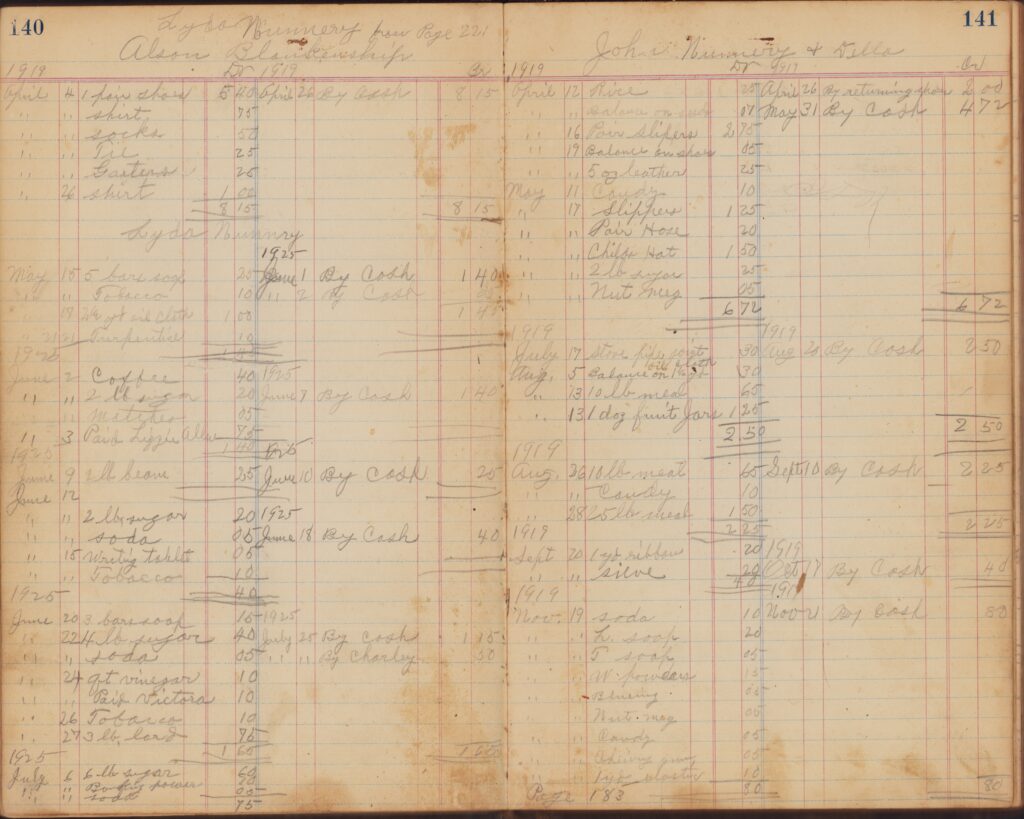 140
Lyda Nunnery from Page 221
Alson Blankenship
1919 Dr 1919 Cr
April 4 1 pair shoes 5 40 April 26 By Cash 8 15
" " shirt 75
" " socks 50
" " Tie 25
" " Garters 25
" 26 shirt 1 00
8 15 8 15
Lyda Nunnry
1925
May 15 5 bars soap 25 June 1 By Cash 1 40
" " Tobacco 10 " 2 By Cash
" oil cloth 1 00 1 40
" Turpentine 10
1925
June 2 Coffee 40 1925
" " 2 lb sugar 20 June 7 By Cash 1 40
" " Matches 05
" 3 Paid Lizzie 75
1925 1 40 1925
June 9 2 lb beans 25 June 10 By Cash 25
June 12
" " 2 lb sugar 20 1925
" " soda 05 June 18 By Cash 40
" 15 Writing tablet 05
" " Tobacco 10
1925 40
June 20 3 bars soap 15 1925
" 22 4 lb sugar 40 July 25 By Cash 1 15
" " soda 05 " " By Charley 50
" 24 qt vinegar 10
" " Paid Victora 10
" 26 Tobacco 10
" 27 3 lb lard 75
1925 1 65
July 6 6 lb sugar
" " Baking power 05
" " soda
75
141
John Nunnery & Della
1919 Dr 1919 Cr
April 12 Rice 25 April 26 By returning shoes 2 00
" " Balance on May 31 By Cash 4 72
" 16 Pair Slipers 2 75
" 19 Balance on shoes 05
" " leather 25
May 11 Candy 10
" 17 Slippers 1 25
" " Pair Hose 20
" " Childs Hat 1 50
" " 2 lb sugar 25
" " Nut Meg 05
6 72 6 72
1919 1919
July 17 Stove pipe joint 30 Aug 20 By Cash 2 50
Aug. 5 Balance on oil cloth 30
" 13 10 lb meal 65
" 13 1 doz fruit Jars 1 25
2 50 2 50
1919
Aug. 26 10 lb meat 65 Sept 10 By Cash 2 25
" " Candy 10
" 28 25 lb meal 1 50
1919 2 25 2 25
Sept 20 1 yd ribbon 20 1919
" " sieve 20 Oct 17 By Cash 40
1919 40
Nov. 19 soda 10 Nov 21 By Cash 80
" " L. soap 20
" " T soap 05
" " W. powders 15
" " Bluing 05
" " Nut. meg 05
" " Candy 05
" " Chewing gum 05
" " 1 yd elastic 10
Page 183 80 80